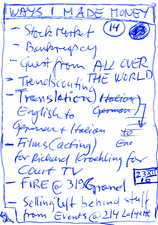 WAYS I MADE MONEY
14
- Stock Market
- Bankruptcy
- Guest from ALL OVER THE WORLD
- Trendscouting
- Translation Italian
English to German
German + Italian to Eng
- Films (acting)
for Richard Kroehling for
Court TV
- FIRE @ 319 Grand
- Selling left behind stuff
from Events @ 214 Lafayette